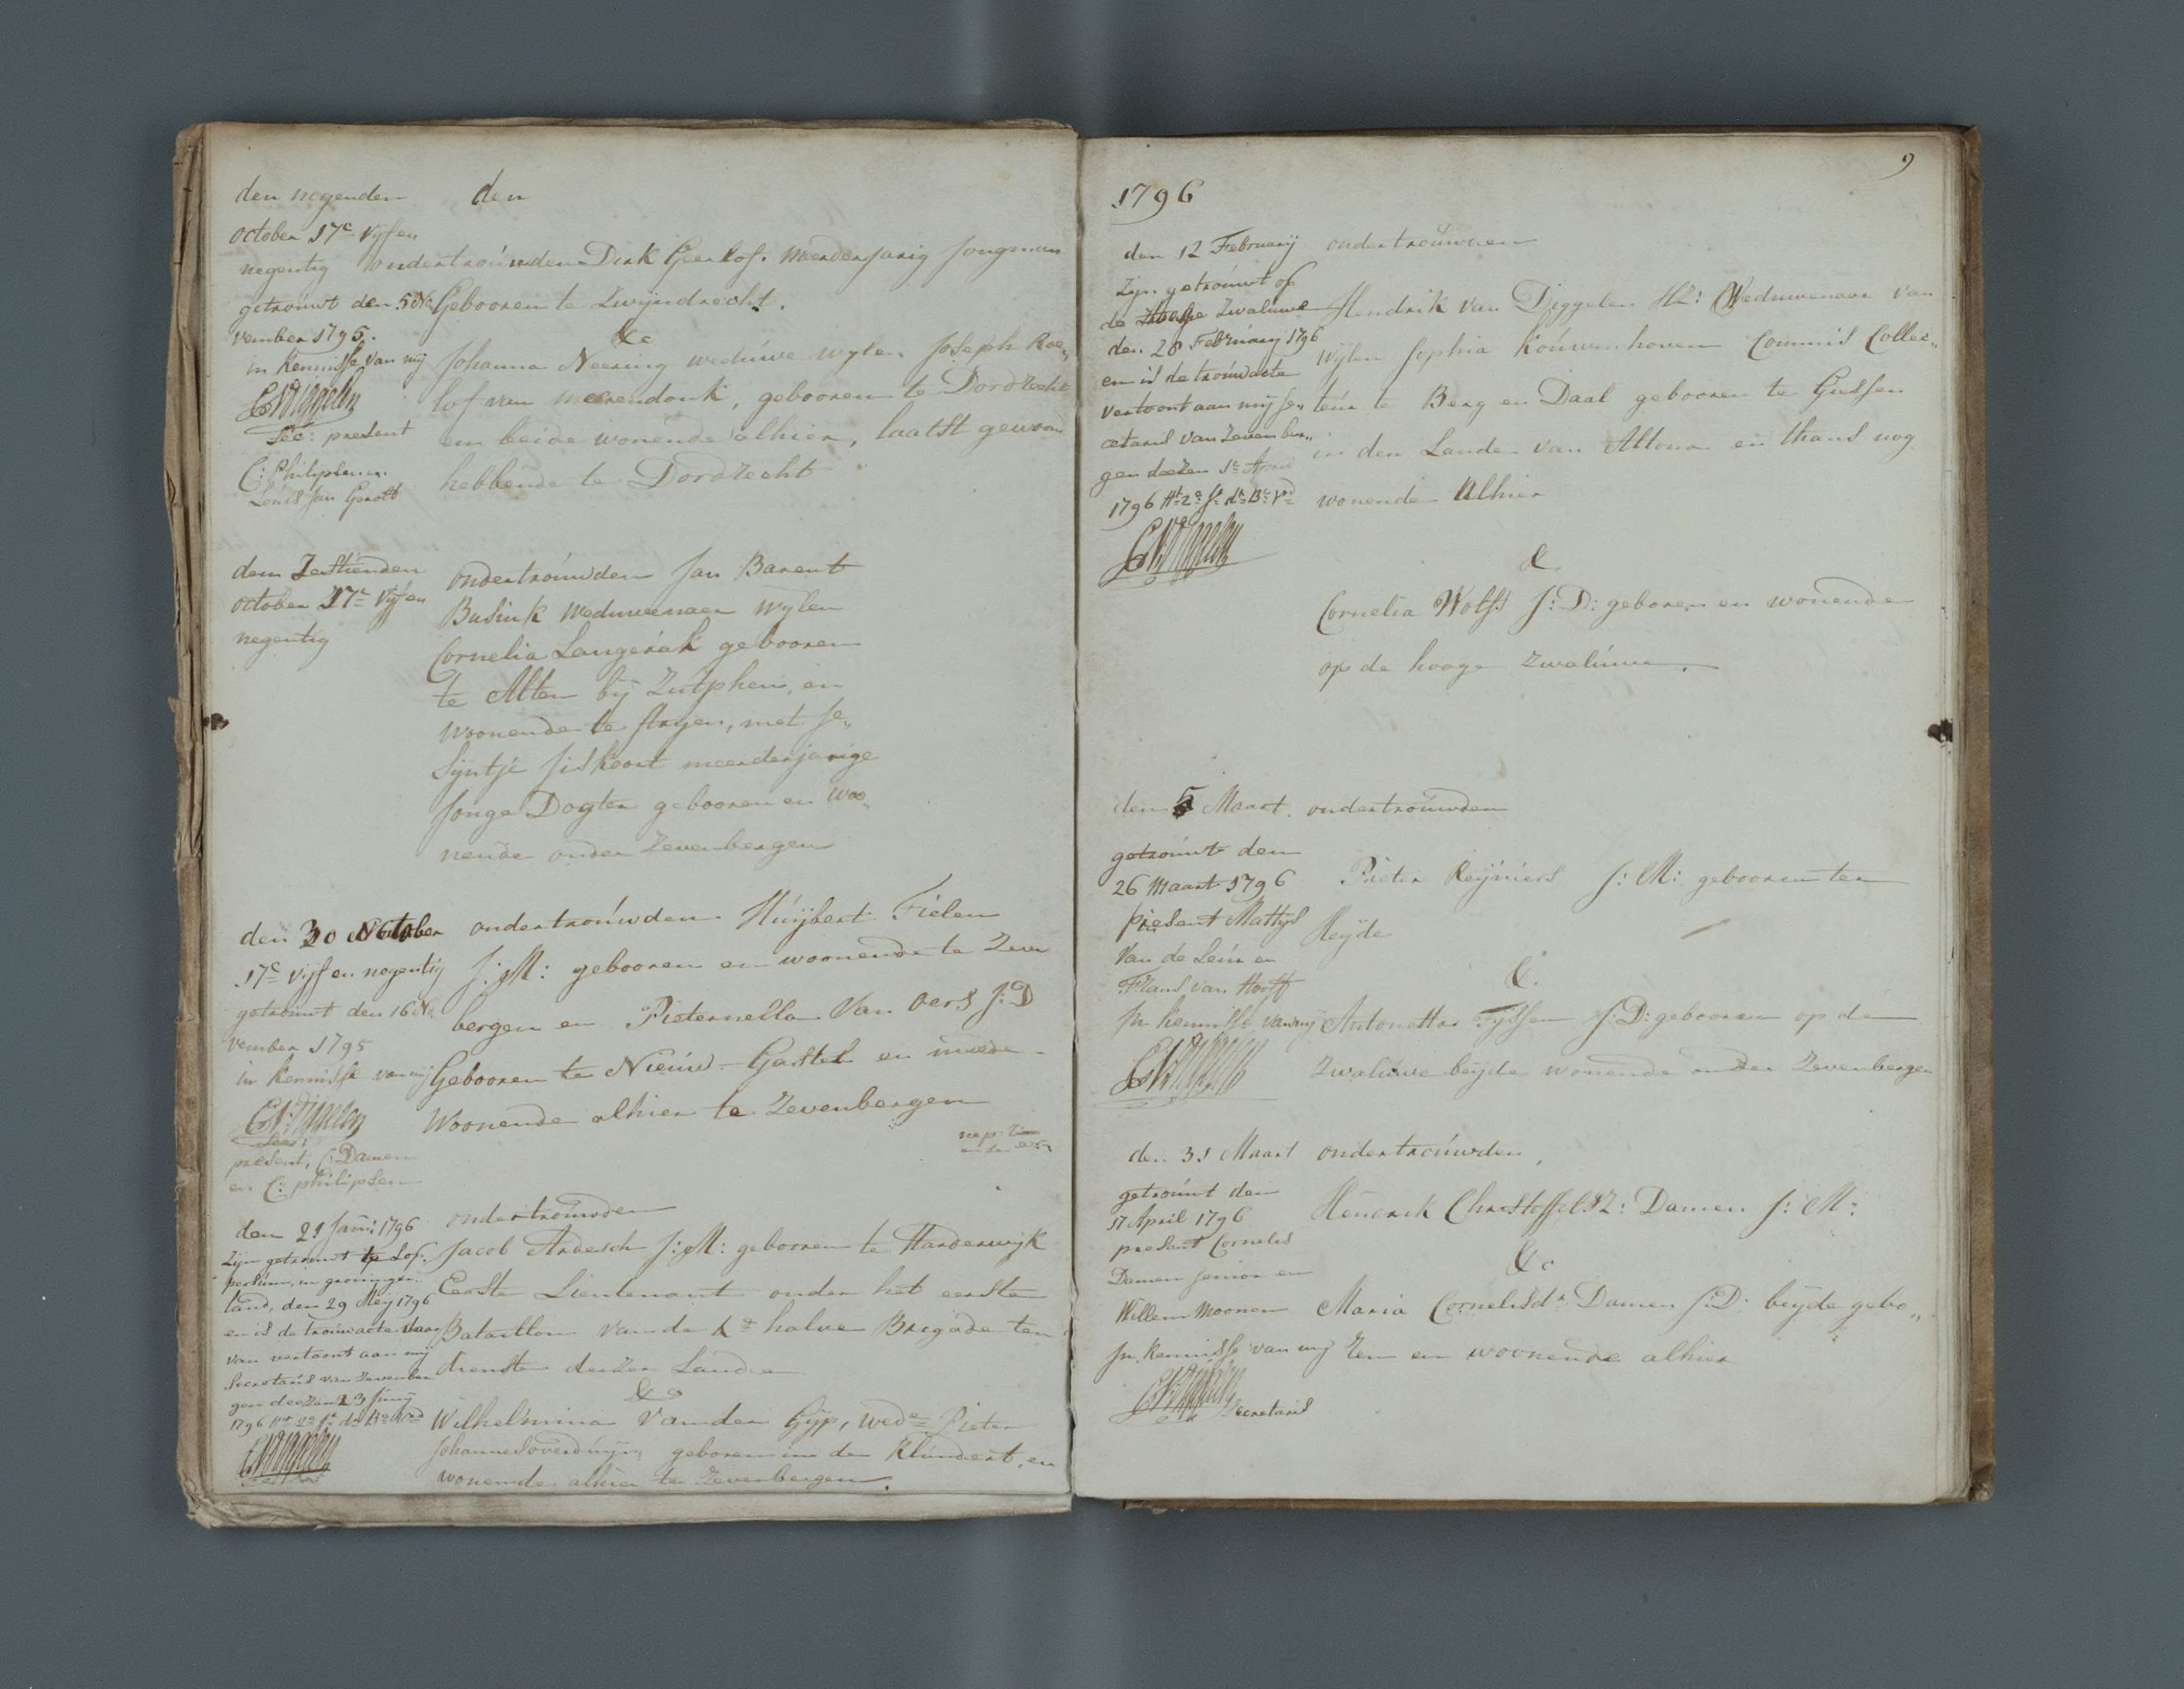 den negenden
october 17c vyf en
negentig
getrouwt den 5 No
vember 1795.
in kennisse van mij
Sec: present
C: Philipsen en
Louis Jan Gerott
den
ondertrouwden Dirk Geerlof. meerderjarig Jongman
Gebooren te Zwijndrecht.
&c
Johanna Neering weduwe wylen Joseph Roe„
lof van meerendonk, gebooren te Dordrecht
en beide wonende alhier, laatst gewoond
hebbende te Dordrecht
den Zesthienden
october 17c Vyf en
negentig
ondertrouwden Jan Barent
Busink Weduwenaer wylen
Cornelia Langerak gebooren
te Alten bij Zutphen, en
woonende te stryen, met Je„
Sijntje Jiskoort meerderjarige
Jonge Dogter gebooren en woo„
nende onder Zevenbergen
den 30 October
17c vijf en negentig
getrouwt den 16 No
vember 1795
in kennisse van mij
Secr:
present, C: Damen
en C: philipsen
ondertrouwden Huijbert Fielen
J:M: gebooren en woonende te Zeve
bergen en Pieternella Van Oers J:D
Gebooren te Nieuw-Gastel en meede
Woonende alhier te Zevenbergen
den 21 Janu: 1796
Zijn getrouwt te Lop„
persum, in groninger
land, den 29 Meij 1796
en is de trouwacte daar
van vertoont aan mij
Secretaris van Zevenber
gen deezen 23 Junij
1796 Ht 2e Jr dr Be Vd
ondertrouwden
Jacob Ardesch J:M: gebooren te Harderwijk
Eerste Lieutenant onder het eerste
Bataillon van de 1e halve Brigade ten
dienste deezer Lande
&c
Wilhelmina Van der Gijp, wede Pieter
Johannes overduijn, geboren in de Klundert, en
wonende alhier te Zevenbergen.
9
1796
den 12 Februarij
Zijn getrouwt op
de Hooge Zwaluwe
den 28 February 1796
en is de trouwacte
vertoont aan mij Se„
cetaris van Zevenber„
gen deezen 1e April
1796 Ht 2e Jr dr Be Vd
ondertrouwen
Hendrik van Diggelen HZ: Weduwenaer van
wijlen Sophia Kouwenhoven Commis Collec„
teur te Berg en Daal gebooren te Giessen
in den Lande van Altona en thans nog
wonende Alhier
&
Cornelia Wolfs J:D: geboren en wonende
op de hooge Zwaluwe.
den 5 Maart. ondertrouwden
getrouwt den
26 Maart 1796
present Mattijs
Van de Leur en
Frans van Hooff
In kennisse van mij
Pieter Reijniers J:M: gebooren ter
Heijde
&.
Antonetta Tijssen J:D: gebooren op de
Zwaluwe beijde wonende onder Zevenbergen
den 31 Maart ondertrouwden,
getrouwt den
17 April 1796
present Cornelis
Damen senior en
Willem Moonen
In kennisse van mij
Secretaris
Hendrik ChristoffelsZ: Damen J:M:
&c
Maria Cornelisdr Damen J:D: beijde gebo„
ren en woonende alhier